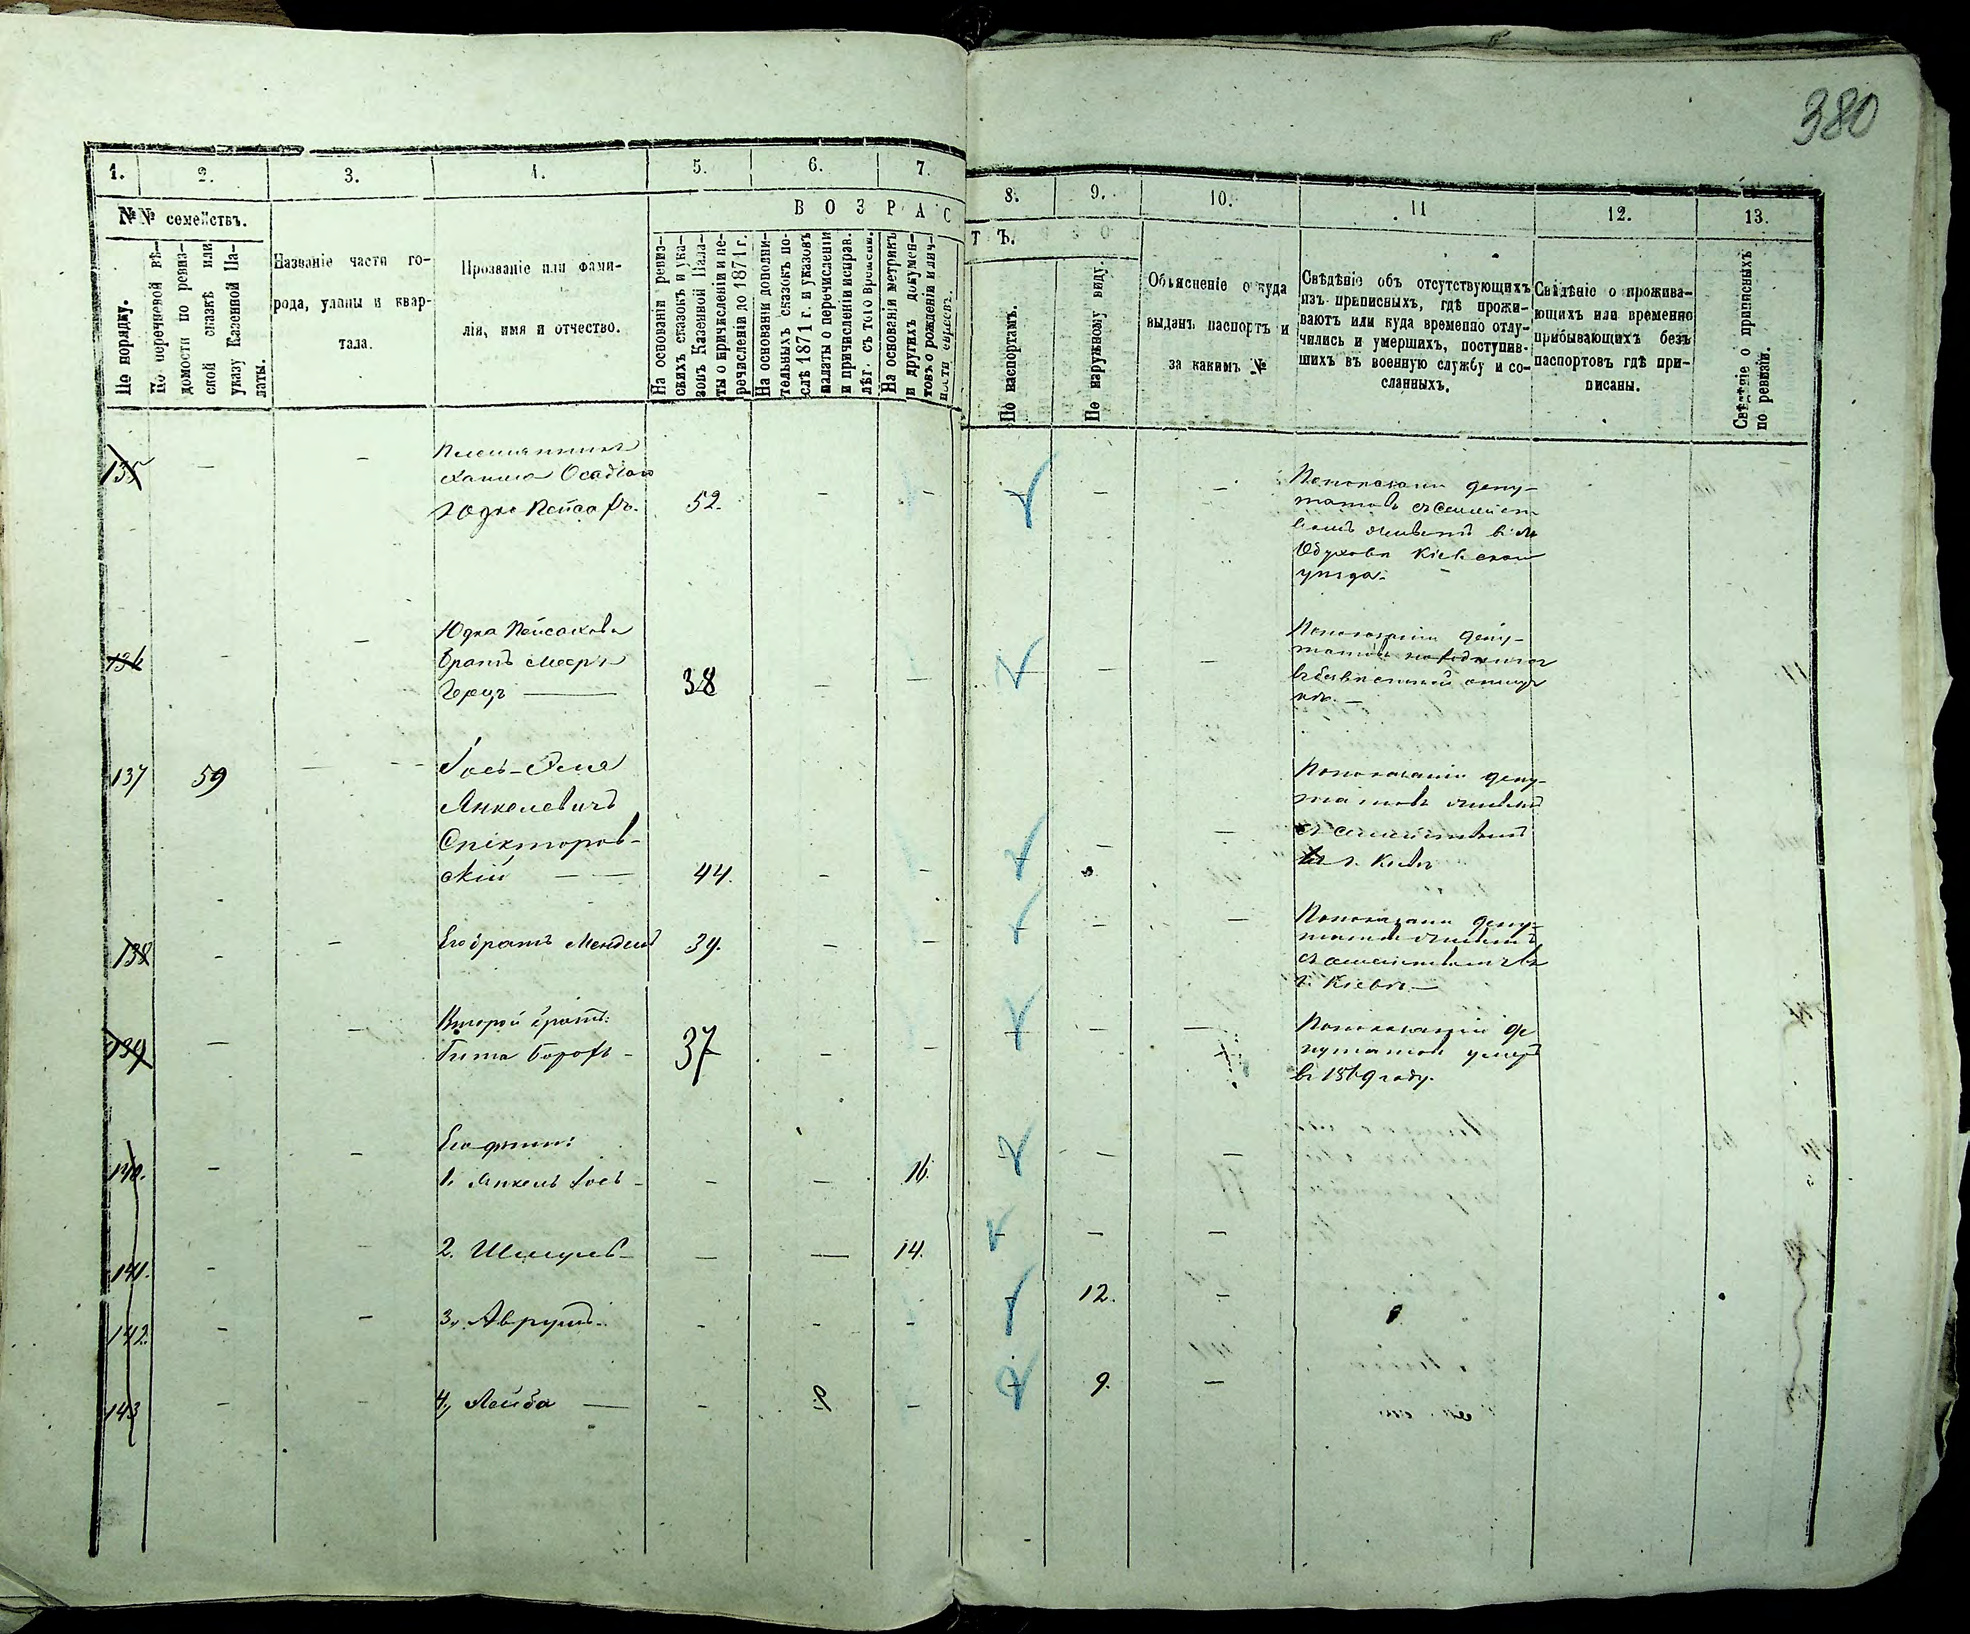 380
1.
2.
3.
4.
5.
6.
7.
8.
9.
10.
11
12.
13.
№№ семействъ.
По порядку.
По перечневой вѣ-
домости по ревиз-
ской сказкѣ или
указу Казенной Па-
латы.
Названіе части го-
рода, улицы и квар-
тала.
Прозваніе или фами-
лія, имя и отчество.
ВОЗРАСТЪ.
На основаніи ревиз-
скихъ сказокъ и ука-
зовъ Казенной Пала-
ты о причисленіи и пе-
речисленіи до 1871 г.
На основаніи дополни-
тельныхъ сказокъ по-
слѣ 1871 г. и указовъ
палаты о перечисленіи
и причисленіи исправ.
лѣт. съ того времени.
На основаніи метрикъ
и другихъ докумен-
товъ о рожденіи и лич-
ности евреевъ.
По паспортамъ.
По наружному виду.
Объясненіе откуда
выданъ паспортъ и
за какимъ №
Свѣдѣніе объ отсутствующихъ
изъ приписныхъ, гдѣ прожи-
ваютъ или куда временно отлу-
чились и умершихъ, поступив-
шихъ въ военную службу и со-
сланныхъ.
Свѣдѣніе о прожива-
ющихъ или временно
прибывающихъ безъ
паспортовъ гдѣ при-
писаны.
Свѣдѣніе о приписныхъ
по ревизіи.
135 — —
Племянникъ
Юдко Пейсахъ. 52. — — — —
По показанію депу-
татовъ съ семейст-
вомъ живетъ въ м.
Обухови Кіевскаго
уѣзда.
136 — —
Юдка Пейсахова
братъ Мееръ
Герцъ — 38 — — — —
По показанію депу-
татовъ находится
въ безвѣстной отлуч-
кѣ. —
137 59 —
Іось-Эля
Янкелевичъ
Спікторов-
скій — — 44. — — — —
По показанію депу-
татовъ живетъ
съ семействомъ
въ г. Кіевѣ
138 — —
Его братъ Мендель 39. — — — —
По показанію депу-
татовъ живетъ
съ семействомъ въ
г. Кіевѣ —
139 — —
Второй братъ:
37 — — — —
По показанію де
путатовъ умеръ
въ 1869 году.
140. — —
Его дѣти:
1. Янкель Іось — — — 16. — —
141. — —
2. Шмуль — — — 14. — —
142. — —
3. Аврумъ. — — — 12. —
143 — —
4, Лейба — — 9 — 9. —